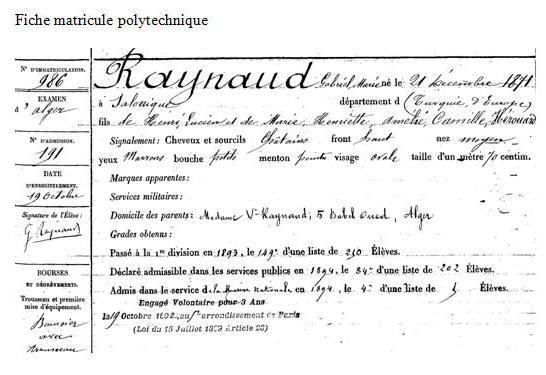 Fiche matricule polytechnique
N° D'IMMATRICULATION.
986
EXAMEN
d'Alger
N° D'ADMISSION.
191
DATE
D'ENREGISTREMENT.
19 octobre
Signature de l'Élève:
G. Raynaud
BOURSES
ET DÉGRÈVEMENTS.
Trousseau et première
mise d'équipement.
Boursier
avec
trousseau
Raynaud Gabriel Marie né le 21 Décembre 1871
à Salonique département d (Turquie d'Europe)
fils de Henri Lucien et de Marie, Henriette, Camille, Hérouard
Signalement: Cheveux et sourcils Châtains front haut nez moyen
yeux Marrons bouche petite menton pointu visage ovale taille d'un mètre 70 centim.
Marques apparentes:
Services militaires:
Domicile des parents: Madame Vve Raynaud, 5 Babel Oued, Alger
Grades obtenus:
Passé à la 1re division en 1893, le 149e d'une liste de 210 Élèves.
Déclaré admissible dans les services publics en 1894, le 84e d'une liste de 202 Élèves.
Admis dans le service de la Marine Nationale en 1894, le 4e d'une liste de Élèves.
Engagé Volontaire pour 3 Ans
la 19 Octobre 1892, au 5e arrondissement de Paris
(Loi du 15 Juillet 1889 Article 28)